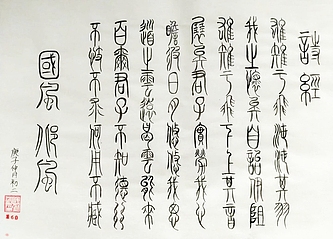 詩經
雄雉于飛泄泄其羽
我之懷矣自詒伊阻
雄雉于飛下上其音
展矣君子實勞我心
瞻彼日月悠悠我思
道之雲遠曷雲能來
百爾君子不知德行
不忮不求何用不臧
國風邶風
庚子仲月初二